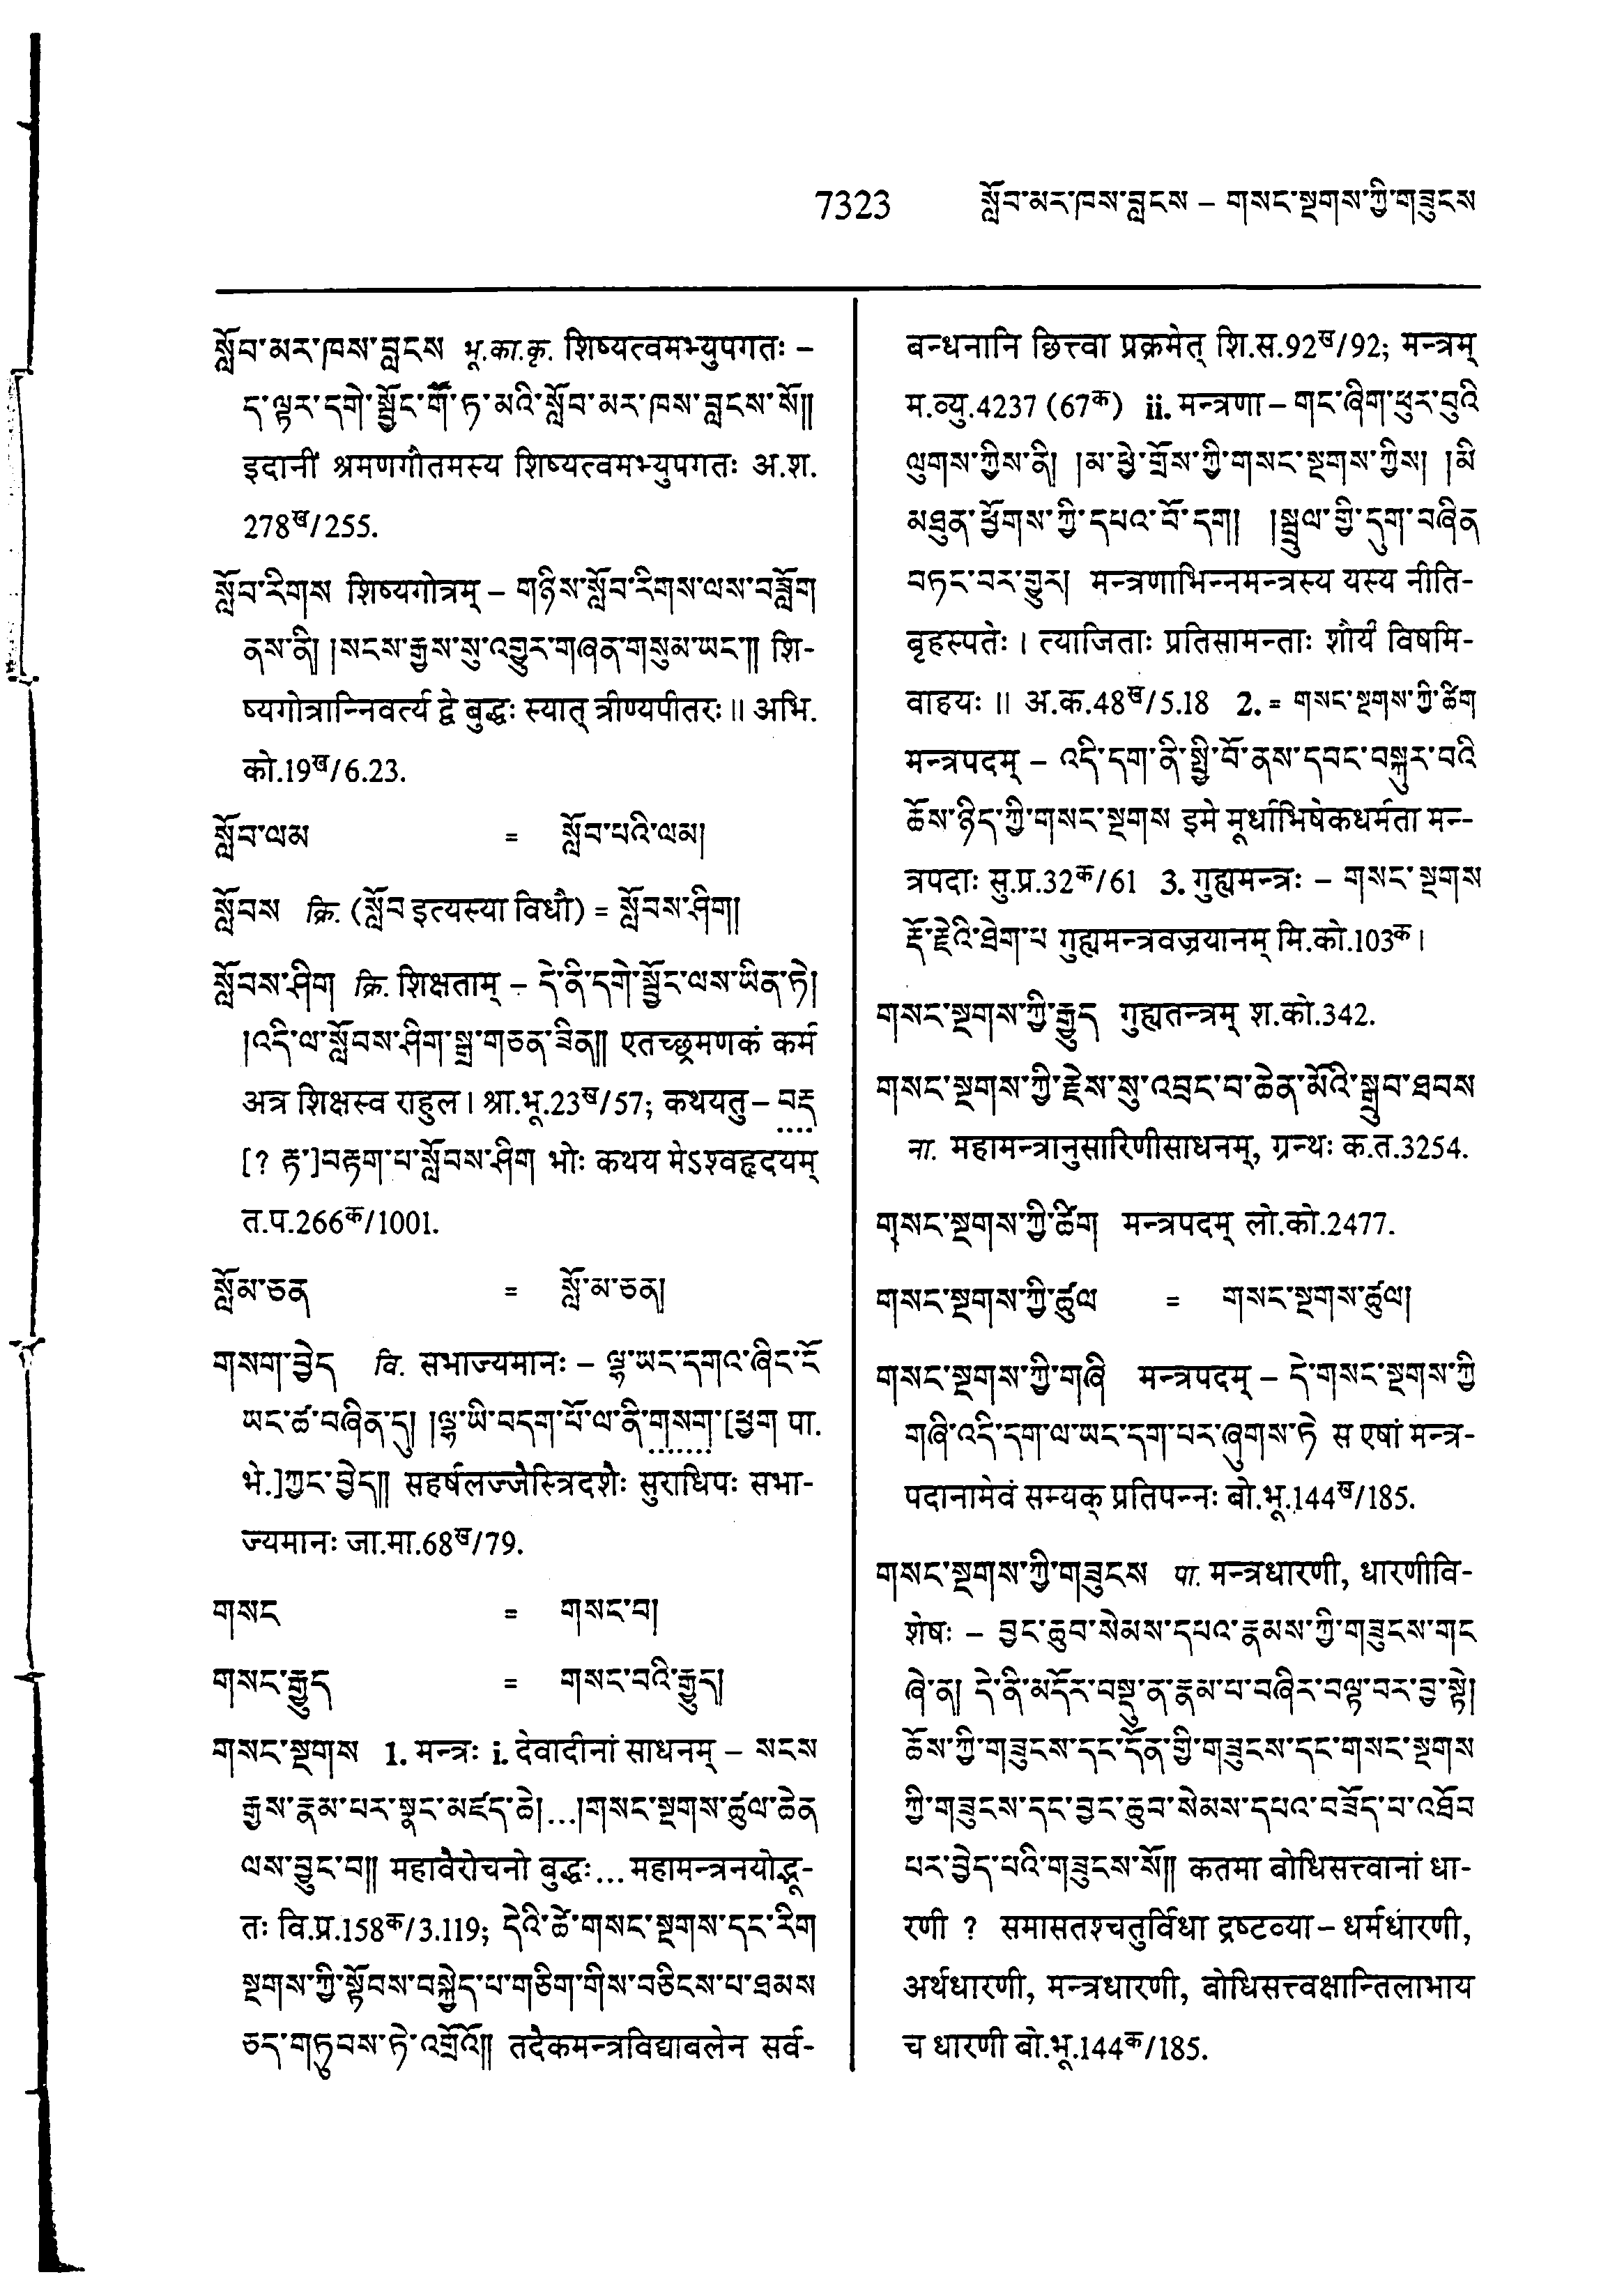 7323 སློབ་མར་ཁས་བླངས – གསང་སྔགས་ཀྱི་གཟུངས
སློབ་མར་ཁས་བླངས भू.का.कृ. शिष्यत्वमभ्युपगतः –
ད་ལྟར་དགེ་སྦྱོང་གཽ་ཏ་མའི་སློབ་མར་ཁས་བླངས་སོ༎
इदानीं श्रमणगौतमस्य शिष्यत्वमभ्युपगतः अ.श.
278ख/255.
སློབ་རིགས शिष्यगोत्रम् – གཉིས་སློབ་རིགས་ལས་བཟློག
ནས་ནི། །སངས་རྒྱས་སུ་འགྱུར་གཞན་གསུམ་ཡང་༎ शि-
ष्यगोत्रान्निवर्त्य द्वे बुद्धः स्यात् त्रीण्यपीतरः ॥ अभि.
को.19ख/6.23.
སློབ་ལམ = སློབ་པའི་ལམ།
སློབས क्रि. (སློབ इत्यस्या विधौ) = སློབས་ཤིག།
སློབས་ཤིག क्रि. शिक्षताम् – དེ་ནི་དགེ་སྦྱོང་ལས་ཡིན་ཏེ།
།འདི་ལ་སློབས་ཤིག་སྒྲ་གཅན་ཟིན༎ एतच्छ्रमणकं कर्म
अत्र शिक्षस्व राहुल । श्रा.भू.23ख/57; कथयतु – བརྡ
[? རྟ་]བརྟག་པ་སློབས་ཤིག भोः कथय मेऽश्वहृदयम्
त.प.266क/1001.
སློམ་ཅན = སློ་མ་ཅན།
གསག་བྱེད वि. सभाज्यमानः – ལྷ་ཡང་དགའ་ཞིང་ངོ
ཡང་ཚ་བཞིན་དུ། །ལྷ་ཡི་བདག་པོ་ལ་ནི་གསག་[ཕྱག पा.
भे.]ཀྱང་བྱེད༎ सहर्षलज्जैस्त्रिदशैः सुराधिपः सभा-
ज्यमानः जा.मा.68ख/79.
གསང = གསང་བ།
གསང་རྒྱུད = གསང་བའི་རྒྱུད།
གསང་སྔགས 1. मन्त्रः i. देवादीनां साधनम् – སངས
རྒྱས་རྣམ་པར་སྣང་མཛད་ཆེ།...།གསང་སྔགས་ཚུལ་ཆེན
ལས་བྱུང་བ༎ महावैरोचनो बुद्धः...महामन्त्रनयोद्भू-
तः वि.प्र.158क/3.119; དེའི་ཚེ་གསང་སྔགས་དང་རིག
སྔགས་ཀྱི་སྟོབས་བསྐྱེད་པ་གཅིག་གིས་བཅིངས་པ་ཐམས
ཅད་གཏུབས་ཏེ་འགྲོའོ༎ तदैकमन्त्रविद्याबलेन सर्व-
बन्धनानि छित्त्वा प्रक्रमेत् शि.स.92ख/92; मन्त्रम्
म.व्यु.4237 (67क) ii. मन्त्रणा – གང་ཞིག་ཕུར་བུའི
ལུགས་ཀྱིས་ནི། །མ་ཕྱེ་གྲོས་ཀྱི་གསང་སྔགས་ཀྱིས། །མི
མཐུན་ཕྱོགས་ཀྱི་དཔའ་བོ་དག། །སྦྲུལ་གྱི་དུག་བཞིན
བཏང་བར་གྱུར། मन्त्रणाभिन्नमन्त्रस्य यस्य नीति-
बृहस्पतेः । त्याजिताः प्रतिसामन्ताः शौर्यं विषमि-
वाहयः ॥ अ.क.48ख/5.18 2. = གསང་སྔགས་ཀྱི་ཚིག
मन्त्रपदम् – འདི་དག་ནི་སྤྱི་བོ་ནས་དབང་བསྐུར་བའི
ཆོས་ཉིད་ཀྱི་གསང་སྔགས इमे मूर्धाभिषेकधर्मता मन्-
त्रपदाः सु.प्र.32क/61 3. गुह्यमन्त्रः – གསང་སྔགས
རྡོ་རྗེའི་ཐེག་པ गुह्यमन्त्रवज्रयानम् मि.को.103क ।
གསང་སྔགས་ཀྱི་རྒྱུད गुह्यतन्त्रम् श.को.342.
གསང་སྔགས་ཀྱི་རྗེས་སུ་འབྲང་བ་ཆེན་མོའི་སྒྲུབ་ཐབས
ना. महामन्त्रानुसारिणीसाधनम्, ग्रन्थः क.त.3254.
གསང་སྔགས་ཀྱི་ཚིག मन्त्रपदम् लो.को.2477.
གསང་སྔགས་ཀྱི་ཚུལ = གསང་སྔགས་ཚུལ།
གསང་སྔགས་ཀྱི་གཞི मन्त्रपदम् – དེ་གསང་སྔགས་ཀྱི
གཞི་འདི་དག་ལ་ཡང་དག་པར་ཞུགས་ཏེ स एषां मन्त्र-
पदानामेवं सम्यक् प्रतिपन्नः बो.भू.144ख/185.
གསང་སྔགས་ཀྱི་གཟུངས पा. मन्त्रधारणी, धारणीवि-
शेषः – བྱང་ཆུབ་སེམས་དཔའ་རྣམས་ཀྱི་གཟུངས་གང
ཞེ་ན། དེ་ནི་མདོར་བསྡུ་ན་རྣམ་པ་བཞིར་བལྟ་བར་བྱ་སྟེ།
ཆོས་ཀྱི་གཟུངས་དང་དོན་གྱི་གཟུངས་དང་གསང་སྔགས
ཀྱི་གཟུངས་དང་བྱང་ཆུབ་སེམས་དཔའ་བཟོད་པ་འཐོབ
པར་བྱེད་པའི་གཟུངས་སོ༎ कतमा बोधिसत्त्वानां धा-
रणी ? समासतश्चतुर्विधा द्रष्टव्या – धर्मधारणी,
अर्थधारणी, मन्त्रधारणी, बोधिसत्त्वक्षान्तिलाभाय
च धारणी बो.भू.144क/185.